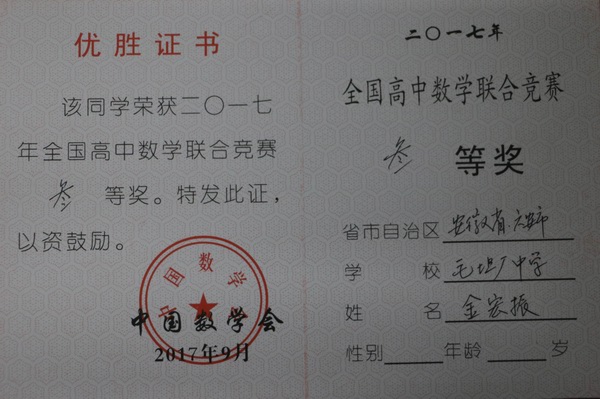 优胜证书
该同学荣获二〇一七
年全国高中数学联合竞赛
叁 等奖。特发此证，
以资鼓励。
中国数学会
中国数学会
2017年9月
二〇一七年
全国高中数学联合竞赛
叁 等奖
省市自治区 安徽省六安市
学校 毛坦厂中学
姓名 金宏振
性别 年龄 岁